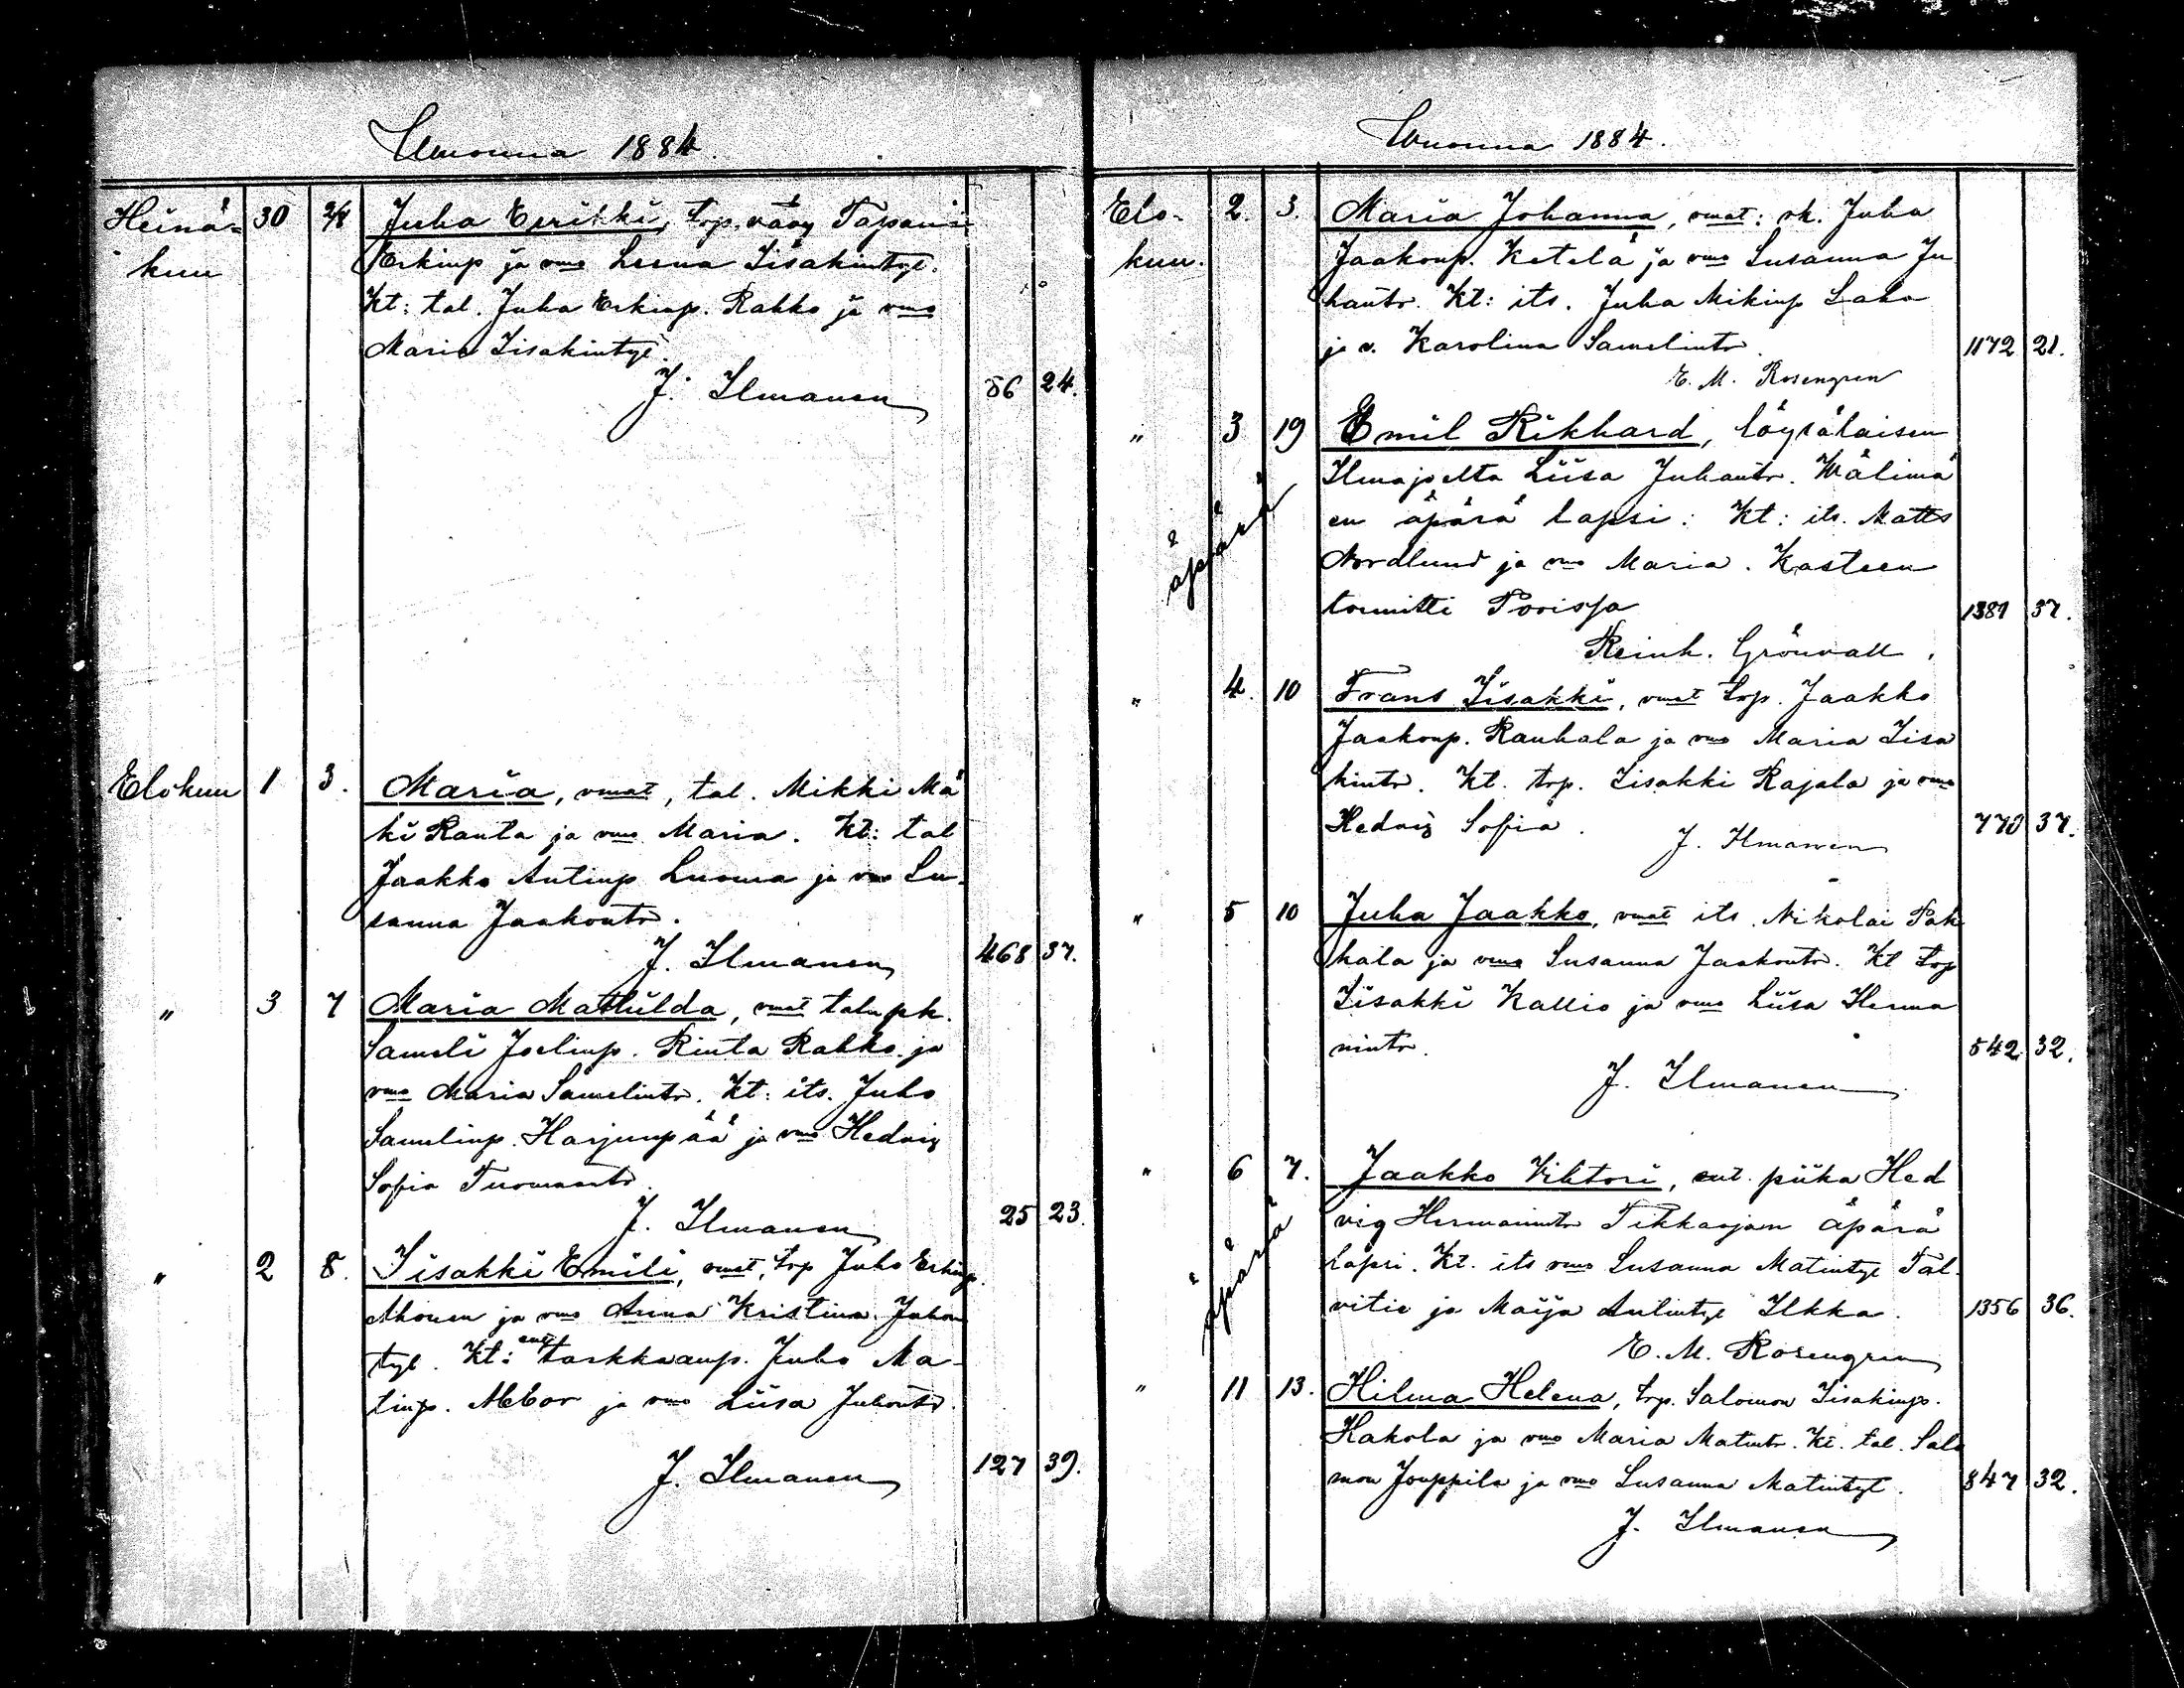 Wuonna 1884.
Heinä= 30 2/8 Juha Eerikki, trp. vävy Tapani
kuu Erkinp ja vmo Leena Iisakintyt.
Kt: tal. Juha Erkinp. Rahko ja vmo
Maria Iisakintyt.
J. Ilmanen 56 24.
Elokuu 1 3. Maria, vmat, tal. Mikki Mä
ki Ranta ja vmo Maria. Kt: tal
Jaakko Antinp Luoma ja vmo Su-
sanna Jaakontr.
J. Ilmanen 468 37.
" 3 7 Maria Mathilda, vmat talupk.
Sameli Joelinp. Rinta Rahko ja
vmo Maria Samelintr. Kt: its. Juho
Samelinp. Harjunpää ja vmo Hedvig
Sofia Tuomaantr.
J. Ilmanen 25 23.
" 2 8. Iisakki Emili, vmat, trp Juho Erkinp.
Ahonen ja vmo Anna Kristina Juhon
tyt. Kt: ent tarkkaamp. Juho Ma-
tinp. ja vmo Liisa Juhontr.
J. Ilmanen 127 39.
Wuonna 1884.
Elo- 2. 3. Maria Johanna, vmat: rk. Juha
kuu. Jaakonp. Ketelä ja vmo Susanna Ju
hantr. Kt: its. Juha Mikinp Laha
ja v. Karolina Samelintr. 1172 21.
E. M. Rosengren
" 3 19 Emil Rikhard, löysäläisen
Ilmajoelta Liisa Juhantr. Wälimä
äpärä en äpärä lapsi: Kt: its. Matts
Nordlund ja vmo Maria. Kasteen
toimitti Porissa 1381 37.
Reinh. Grönvall.
" 4. 10 Frans Iisakki, vmat trp. Jaakko
Jaakonp. Rauhala ja vmo Maria Iisa
kintr. Kt. trp. Iisakki Rajala ja vmo
Hedvig Sofia. 770 37.
J. Ilmanen
" 5 10 Juha Jaakko, vmat its. Nikolai Pak
kala ja vmo Susanna Jaakontr. Kt trp
Iisakki Kallio ja vmo Liisa Herma
nintr. 542 32.
J. Ilmanen
" 6 7. Jaakko Vihtori, ent. piika Hed
vig Hermannintr Tikkaojan äpärä
äpärä lapsi. Kt. its vmo Susanna Matintyt Tal-
vitie ja Maija Antintyt Ilkka. 1356 36.
E. M. Rosengren
" 11 13. Hilma Helena, trp. Salomon Iisakinp.
Hakola ja vmo Maria Matintr. Kt. tal. Salo
mon Jouppila ja vmo Susanna Matintyt. 847 32.
J. Ilmanen